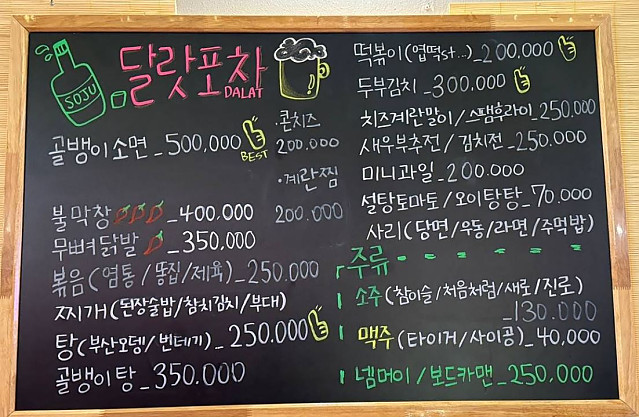 SOJU
달랏포차
DALAT
골뱅이소면_500,000
BEST
·콘치즈
200.000
·계란찜
200,000
불막창_400,000
무뼈닭발_350,000
볶음(염통/똥집/제육)_250.000
찌개(된장술밥/참치김치/부대)
탕(부산오뎅/번데기)_250.000
골뱅이탕_350.000
떡볶이(엽떡st..)_200.000
두부김치_300.000
치즈계란말이/스팸후라이_250,000
새우부추전/김치전_250.000
미니과일_200.000
설탕토마토/오이탕탕_70.000
사리(당면/우동/라면/주먹밥)
주류
소주(참이슬/처음처럼/새로/진로)
_130.000
맥주(타이거/사이공)_40,000
넵머이/보드카맨_250,000